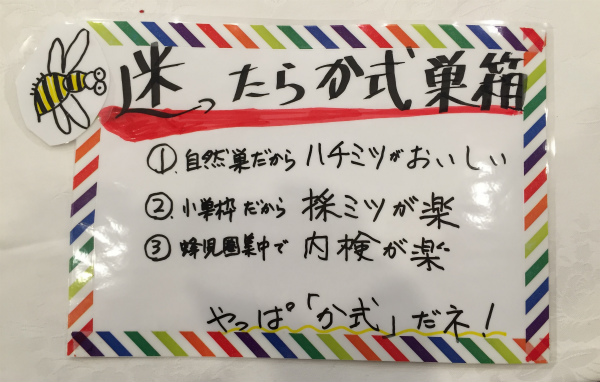 迷ったらか式巣箱
①.自然巣だからハチミツがおいしい
②.小巣枠だから採ミツが楽
③蜂児圏集中で内検が楽
やっぱ「か式」だネ!